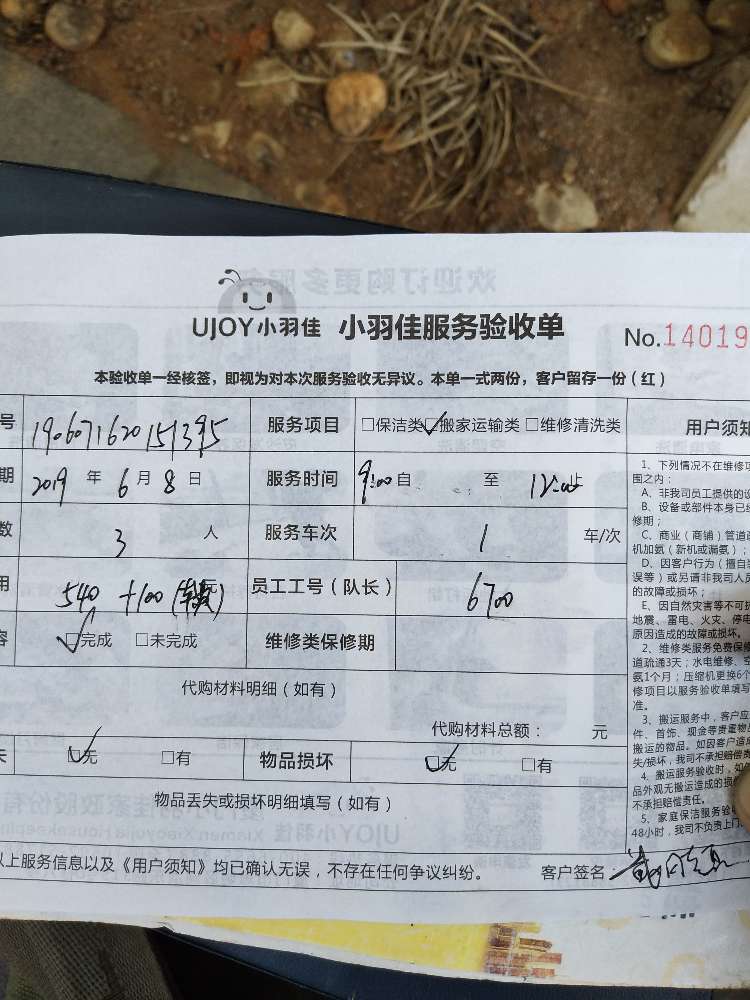 UJOY小羽佳 小羽佳服务验收单 No.14019
本验收单一经核签，即视为对本次服务验收无异议。本单一式两份，客户留存一份（红）
号 1906071620151395 服务项目 □保洁类 ☑搬家运输类 □维修清洗类
期 2019 年 6 月 8 日 服务时间 9:00 自 至 12:00 止
数 3 人 服务车次 1 车/次
用 540 +100 元 员工工号（队长） 6700
容 ☑完成 □未完成 维修类保修期
代购材料明细（如有）
代购材料总额： 元
失 ☑无 □有 物品损坏 ☑无 □有
物品丢失或损坏明细填写（如有）
以上服务信息以及《用户须知》均已确认无误，不存在任何争议纠纷。 客户签名：
用户须知
1、下列情况不在维修项
围之内：
A、非我司员工提供的设
B、设备或部件本身已经
修期；
C、商业（商铺）管道改
机加氨（新机或漏氨）；
D、因客户行为（擅自
误等）或另请非我司人员
的故障或损坏；
E、因自然灾害等不可抗
地震、雷电、火灾、停电
原因造成的故障或损坏。
2、维修类服务免费保修
道疏通3天；水电维修、空
氨1个月；压缩机更换6个
修项目以服务验收单填写
准。
3、搬运服务中，客户应
件、首饰、现金等贵重物品
搬运的物品。如因客户造成
失/损坏，我司不承担赔偿责
4、搬运服务验收时，如
品外观无搬运造成的损
不承担赔偿责任。
5、家庭保洁服务验收
48小时，我司不负责上门